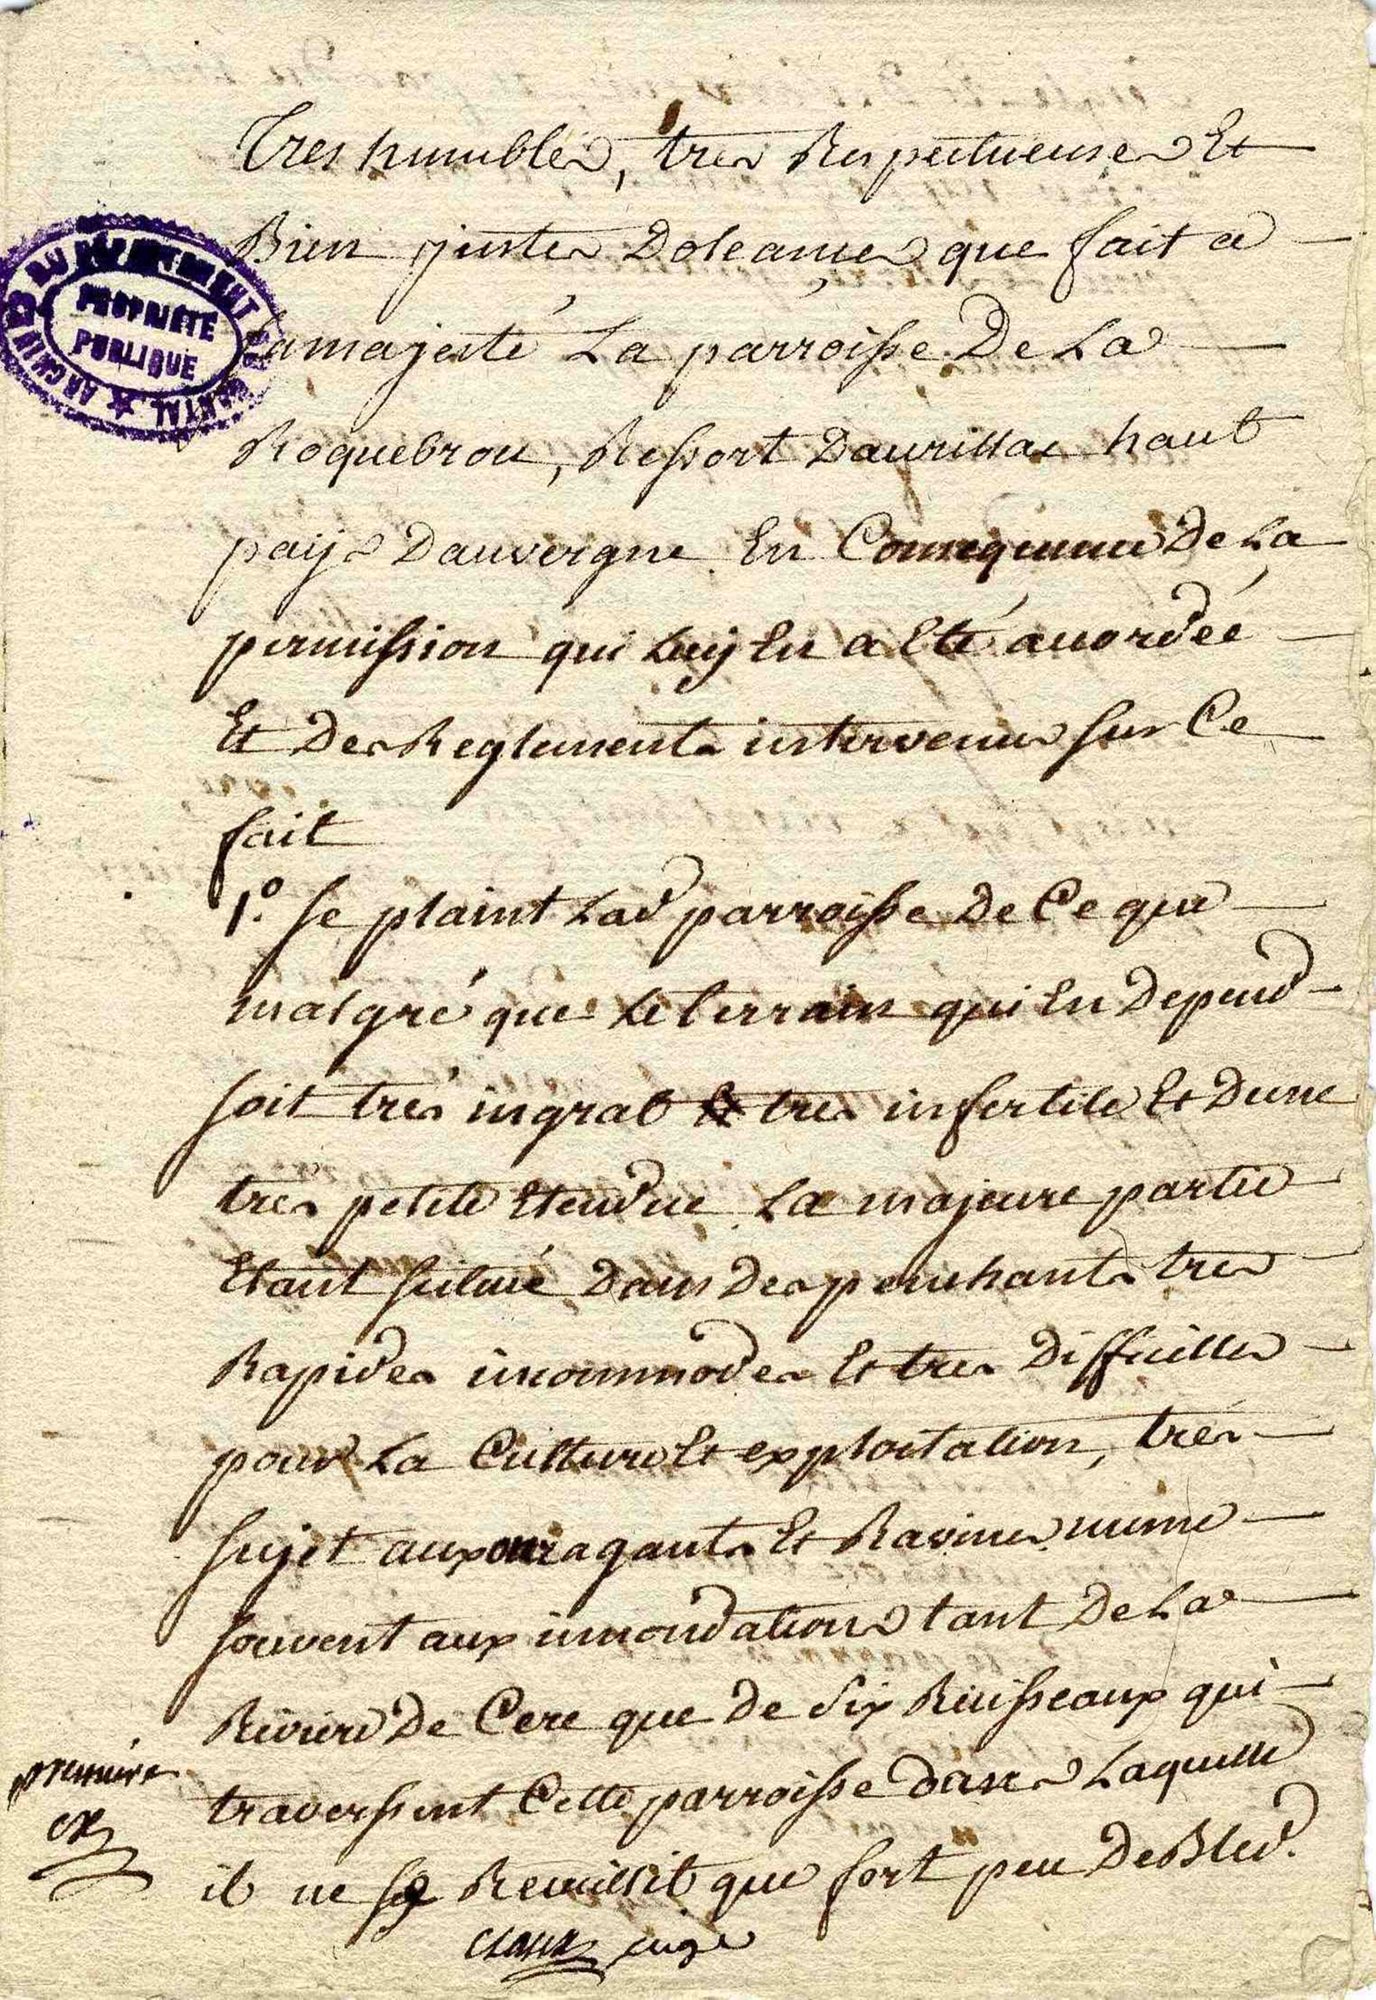 Tres humbles, tres Respectueuses Et
Bien justes Doleances que fait a
sa majesté La parroisse De La
Roquebrou, Ressort Daurillac haut
pays Dauvergne En Consequence De La
permission qui Luy En a Eté accordée
Et Des Reglements intervenus sur Ce
fait
1º. se plaint Lad parroisse De Ce que
malgré que Le terrain qui En Depend
soit trés ingrat tres infertile Et Dune
tres petite Etendue La majeure partie
Etant scitué Dans Des penchants tres
Rapides incommodes Et tres Difficilles
pour La Culture Et exploitation, trés
sujet aux ouragants Et Ravines meme
souvent aux innondations tant De La
Riviere De Cere que De Six Ruisseaux qui
traverssent Cette parroisse dans Laquelle
il ne se Recuillit que fort peu De Bled.
premiere
juge
ARCHIVES DU DÉPARTEMENT DU CANTAL
PROPRIÉTÉ
PUBLIQUE